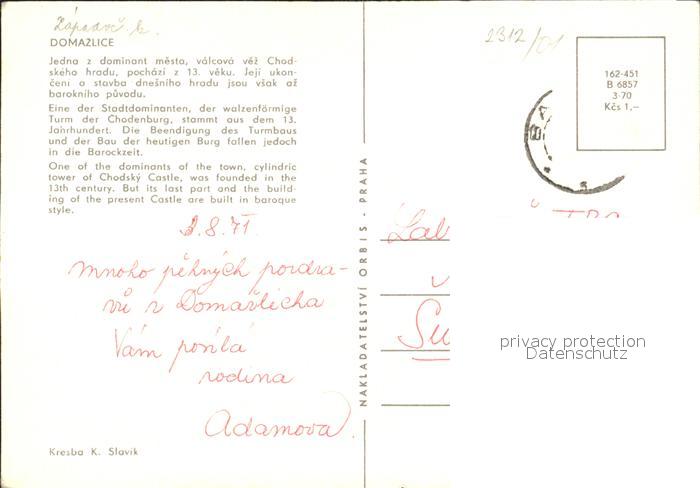 Západoč. k.
2312/01
DOMAŽLICE
Jedna z dominant města, válcová věž Chod-
ského hradu, pochází z 13. věku. Její ukon-
čení a stavba dnešního hradu jsou však až
barokního původu.
Eine der Stadtdominanten, der walzenförmige
Turm der Chodenburg, stammt aus dem 13.
Jahrhundert. Die Beendigung des Turmbaus
und der Bau der heutigen Burg fallen jedoch
in die Barockzeit.
One of the dominants of the town, cylindric
tower of Chodský Castle, was founded in the
13th century. But its last part and the build-
ing of the present Castle are built in baroque
style.
162-451
B 6857
3-70
Kčs 1,–
NAKLADATELSTVÍ ORBIS - PRAHA
2.8.71
Mnoho pěkných pozdra-
vů z Domažlicka
Vám posílá
rodina
Adamova.
Kresba K. Slavík
privacy protection
Datenschutz